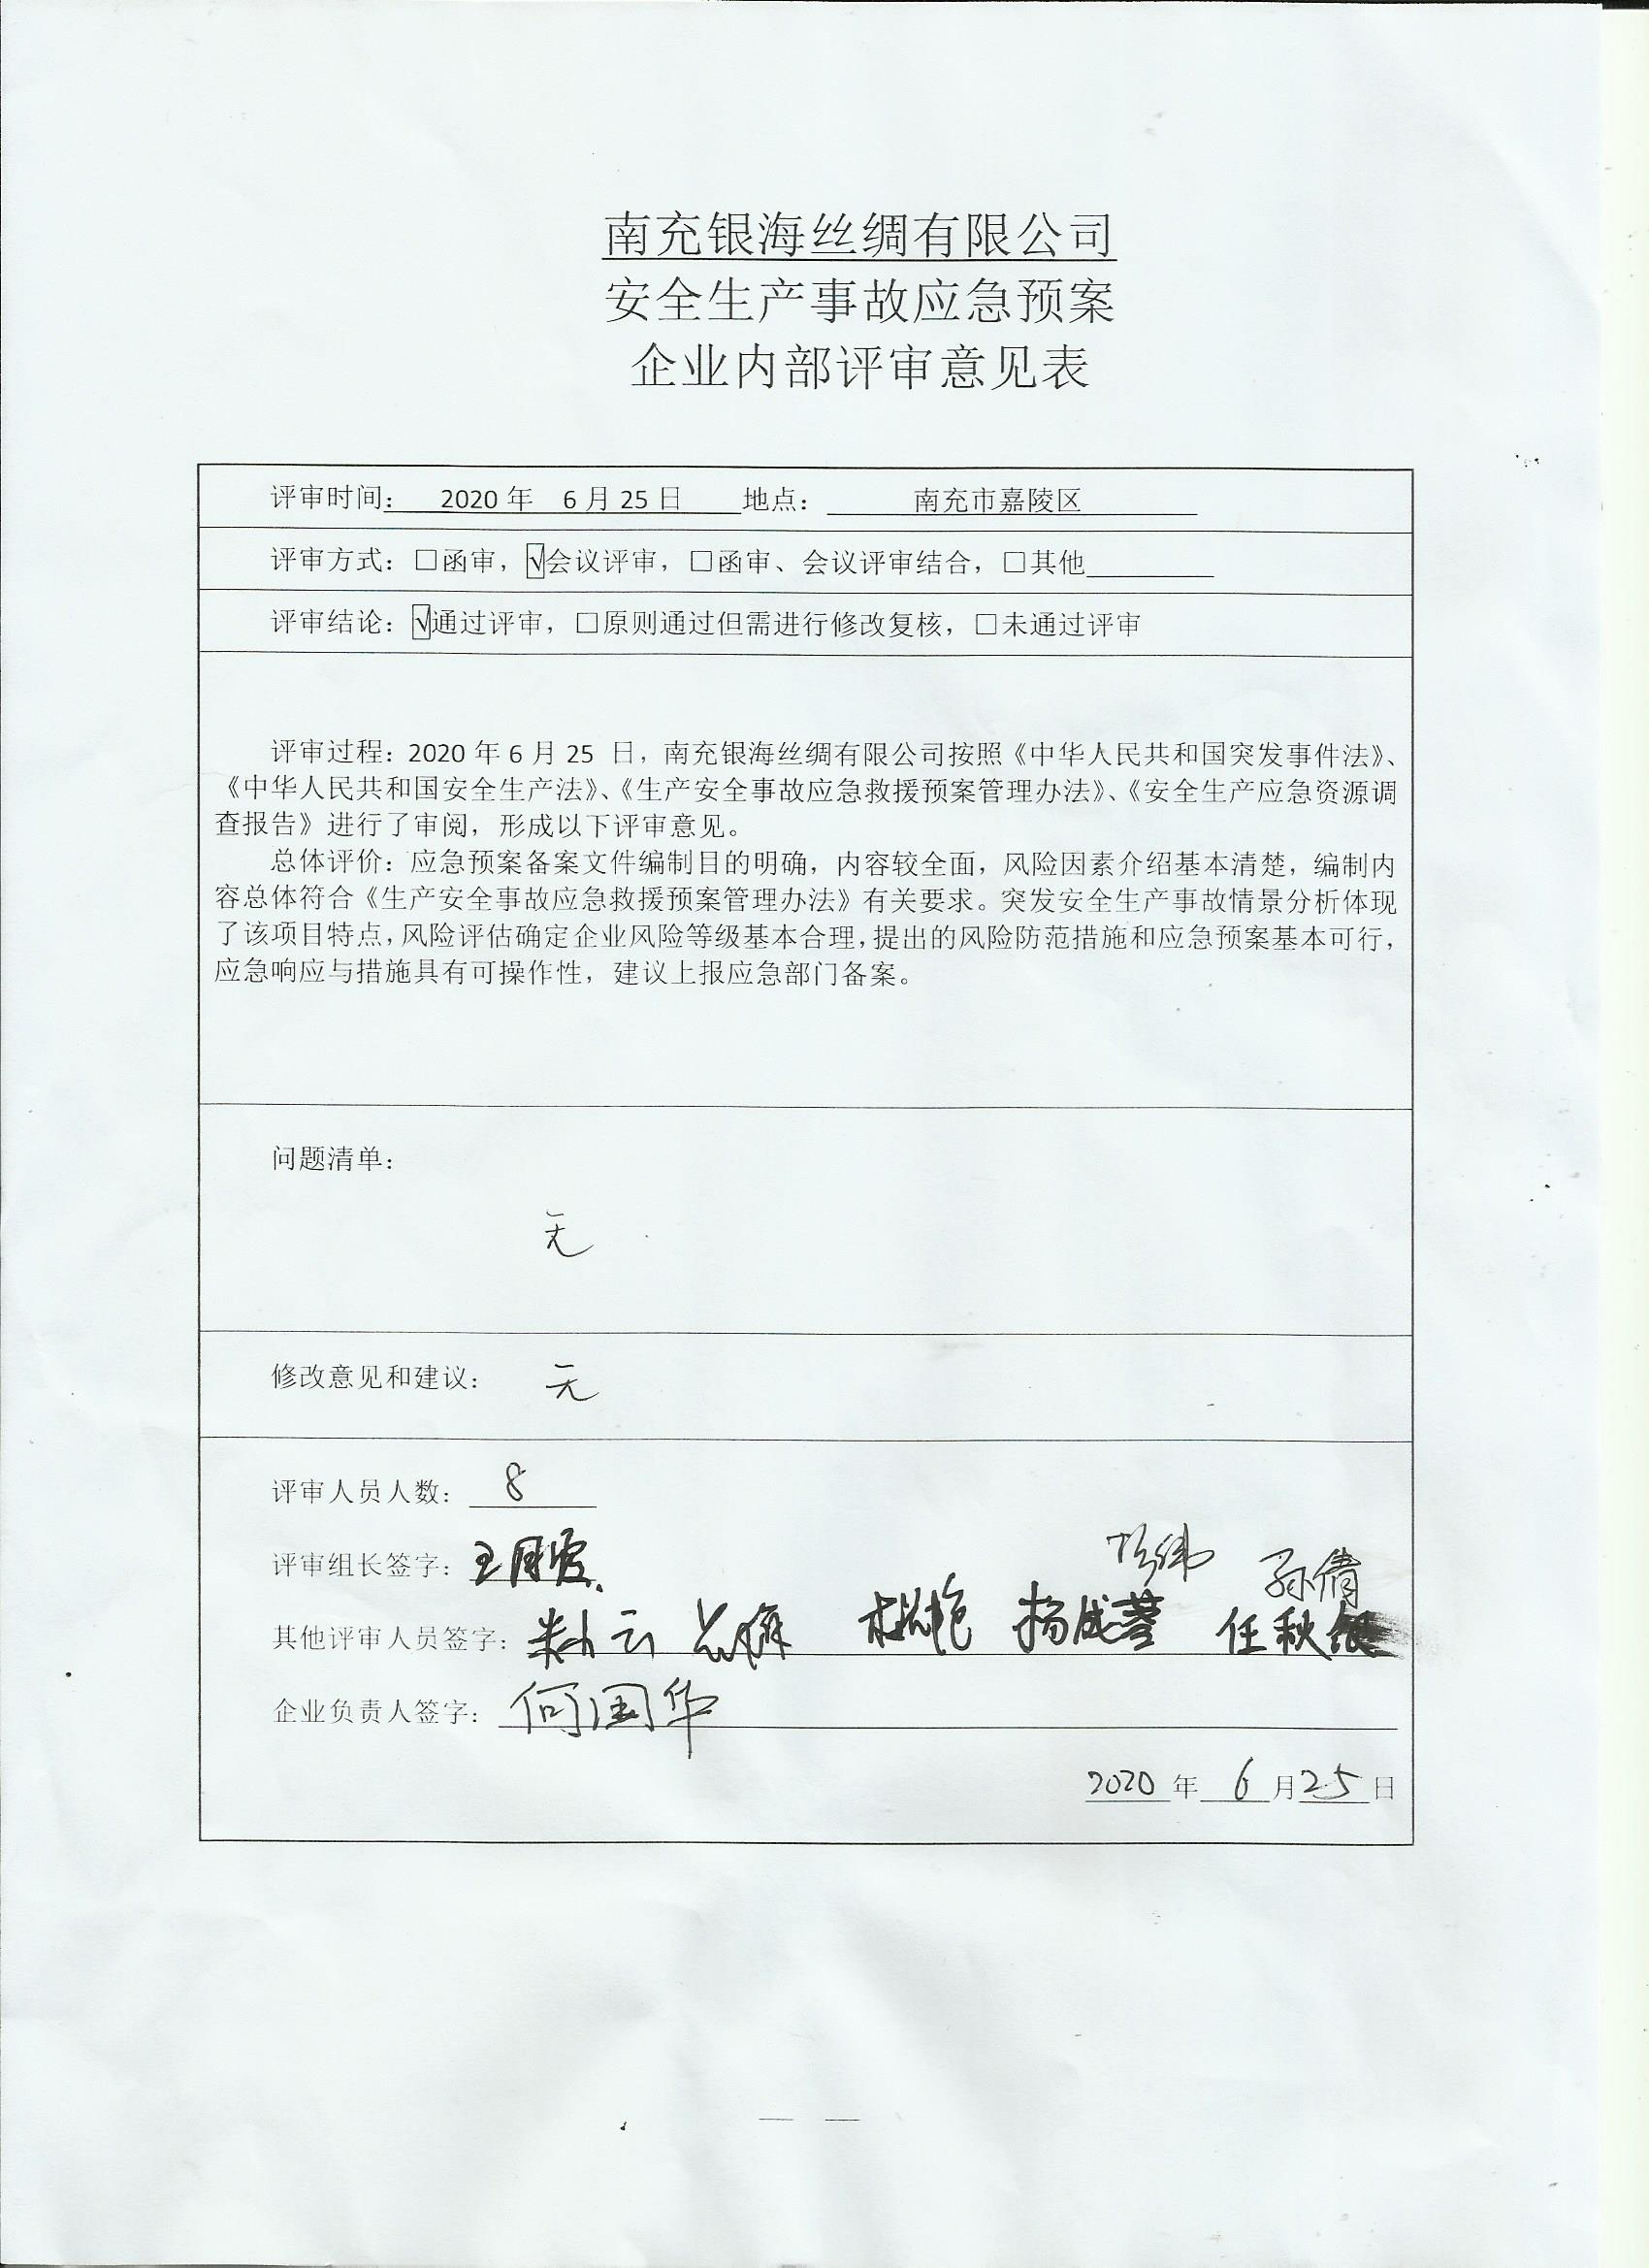 南充银海丝绸有限公司
安全生产事故应急预案
企业内部评审意见表
评审时间： 2020 年 6 月 25 日 地点： 南充市嘉陵区
评审方式：□函审，☑会议评审，□函审、会议评审结合，□其他
评审结论：☑通过评审，□原则通过但需进行修改复核，□未通过评审
评审过程：2020 年 6 月 25 日，南充银海丝绸有限公司按照《中华人民共和国突发事件法》、
《中华人民共和国安全生产法》、《生产安全事故应急救援预案管理办法》、《安全生产应急资源调
查报告》进行了审阅，形成以下评审意见。
总体评价：应急预案备案文件编制目的明确，内容较全面，风险因素介绍基本清楚，编制内
容总体符合《生产安全事故应急救援预案管理办法》有关要求。突发安全生产事故情景分析体现
了该项目特点，风险评估确定企业风险等级基本合理，提出的风险防范措施和应急预案基本可行，
应急响应与措施具有可操作性，建议上报应急部门备案。
问题清单：
无
修改意见和建议： 无
评审人员人数： 8
评审组长签字：
孙倩
其他评审人员签字： 杨成蓉
企业负责人签字： 何国华
2020 年 6 月 25 日